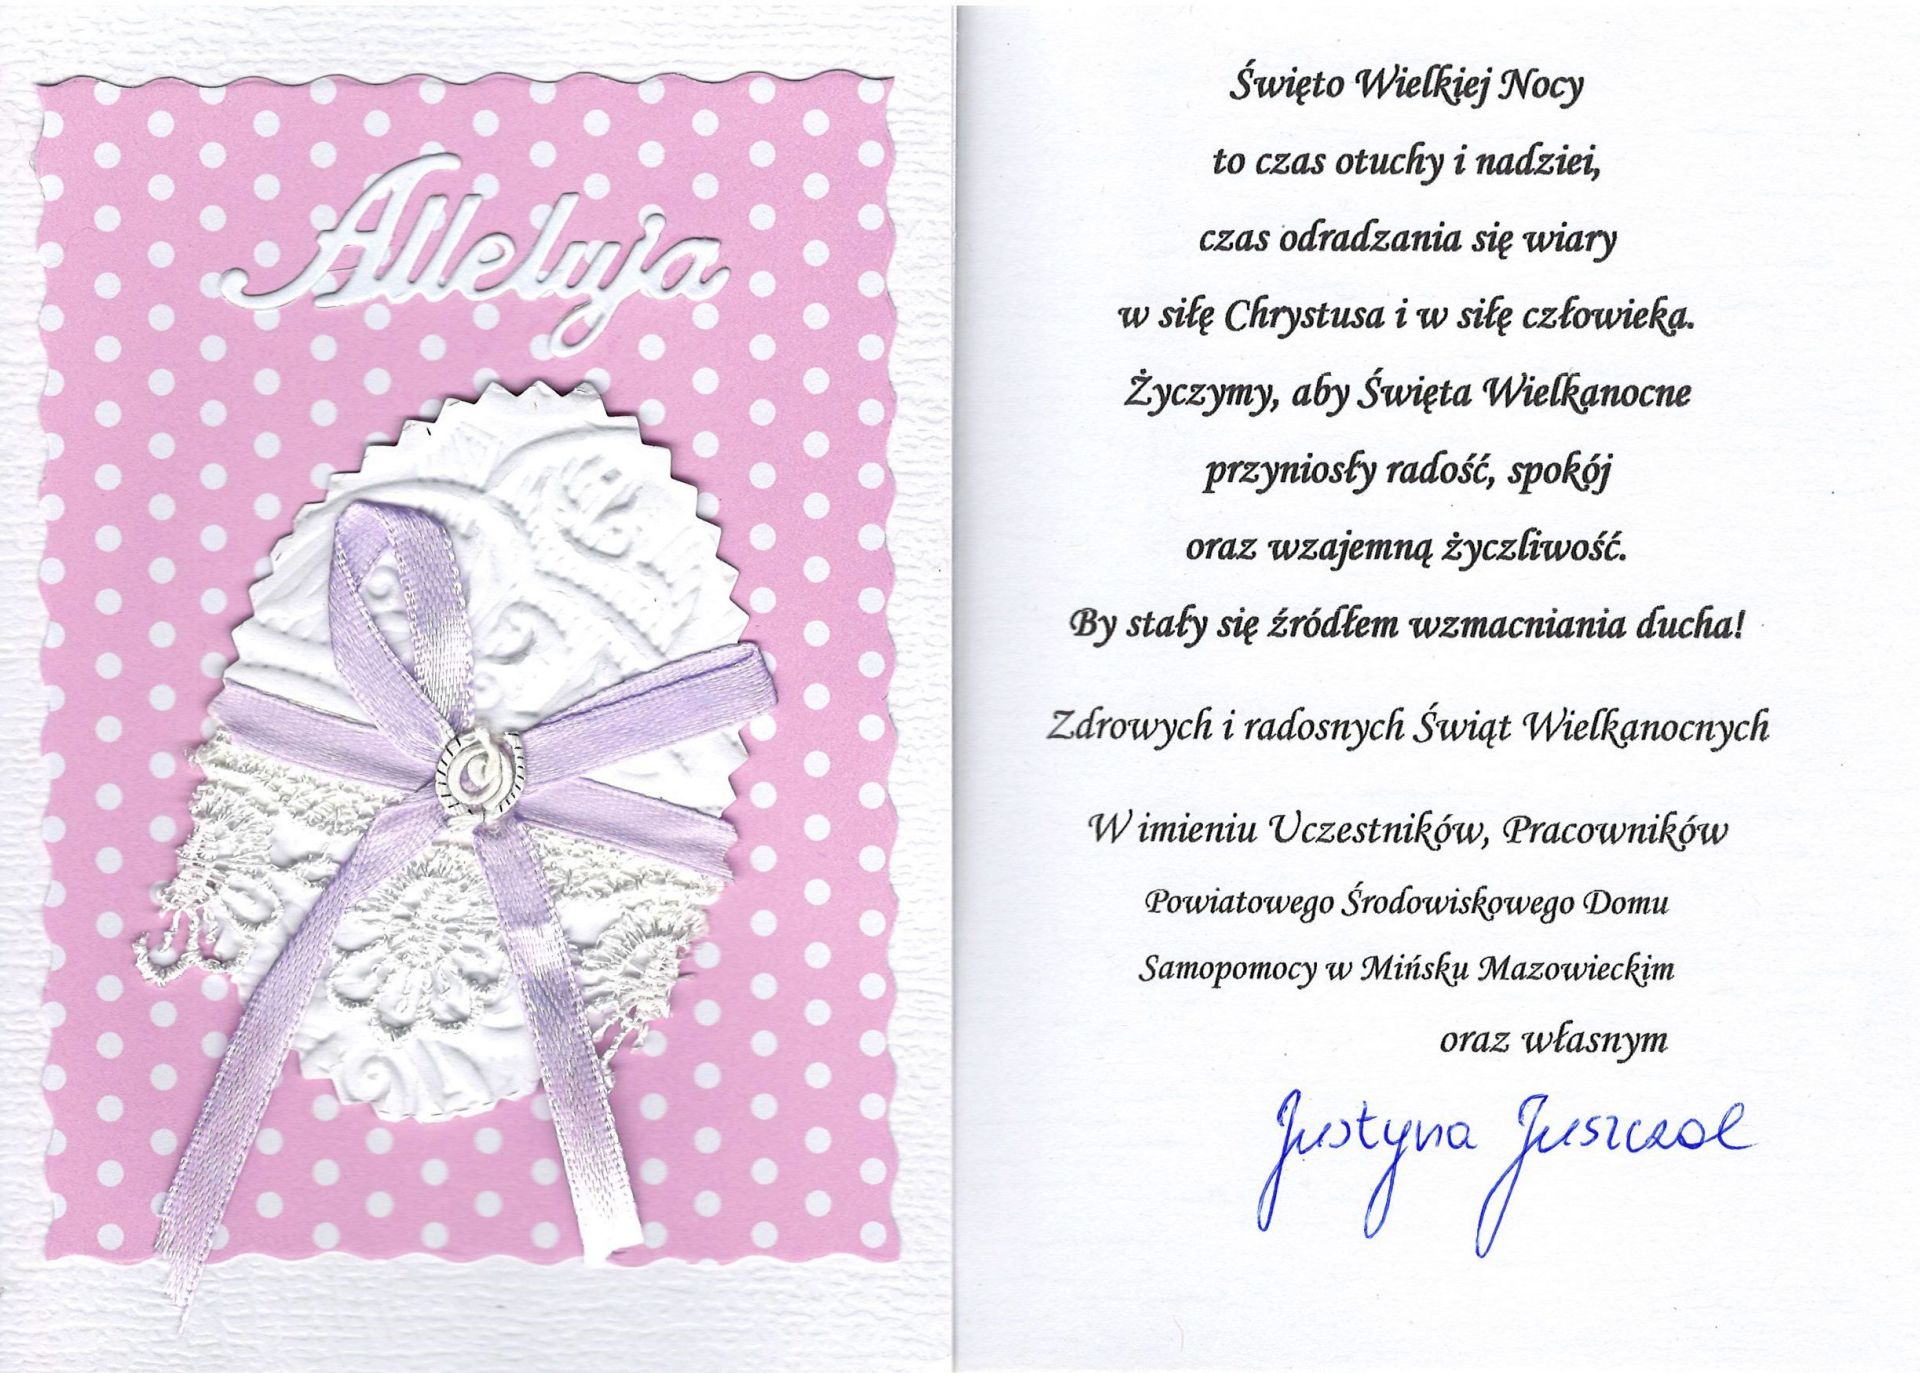 Alleluja
Święto Wielkiej Nocy
to czas otuchy i nadziei,
czas odradzania się wiary
w siłę Chrystusa i w siłę człowieka.
Życzymy, aby Święta Wielkanocne
przyniosły radość, spokój
oraz wzajemną życzliwość.
By stały się źródłem wzmacniania ducha!
Zdrowych i radosnych Świąt Wielkanocnych
W imieniu Uczestników, Pracowników
Powiatowego Środowiskowego Domu
Samopomocy w Mińsku Mazowieckim
oraz własnym
Justyna